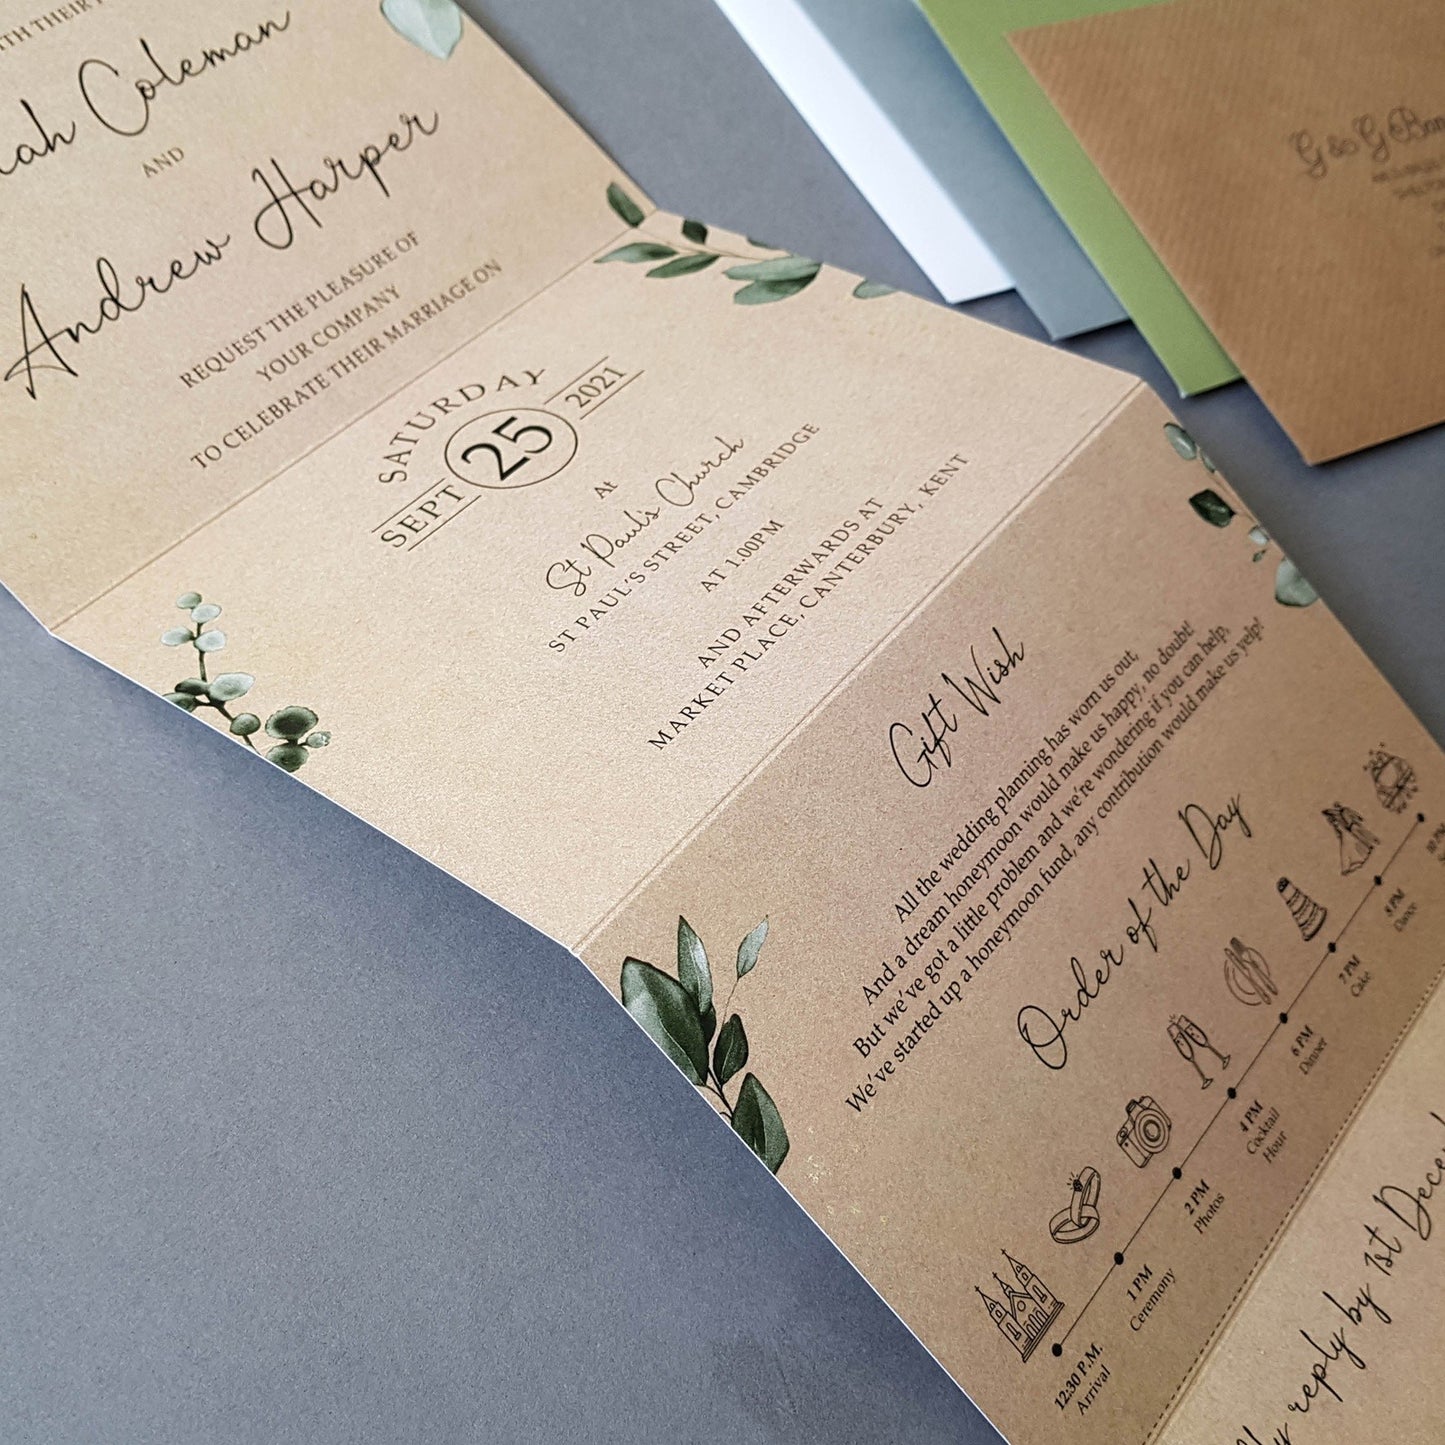 WITH THEIR
Coleman
AND
Andrew Harper
REQUEST THE PLEASURE OF
YOUR COMPANY
TO CELEBRATE THEIR MARRIAGE ON
SATURDAY
SEPT 25 2021
At
St Paul's Church
ST PAUL'S STREET, CAMBRIDGE
AT 1.00PM
AND AFTERWARDS AT
MARKET PLACE, CANTERBURY, KENT
Gift Wish
All the wedding planning has worn us out,
And a dream honeymoon would make us happy, no doubt!
But we've got a little problem and we're wondering if you can help,
We've started up a honeymoon fund, any contribution would make us yelp!
Order of the Day
12:30 P.M.
Arrival
1 PM
Ceremony
2 PM
Photos
4 PM
Cocktail
Hour
6 PM
Dinner
7 PM
Cake
8 PM
Dance
10 PM
reply by 1st
G & G